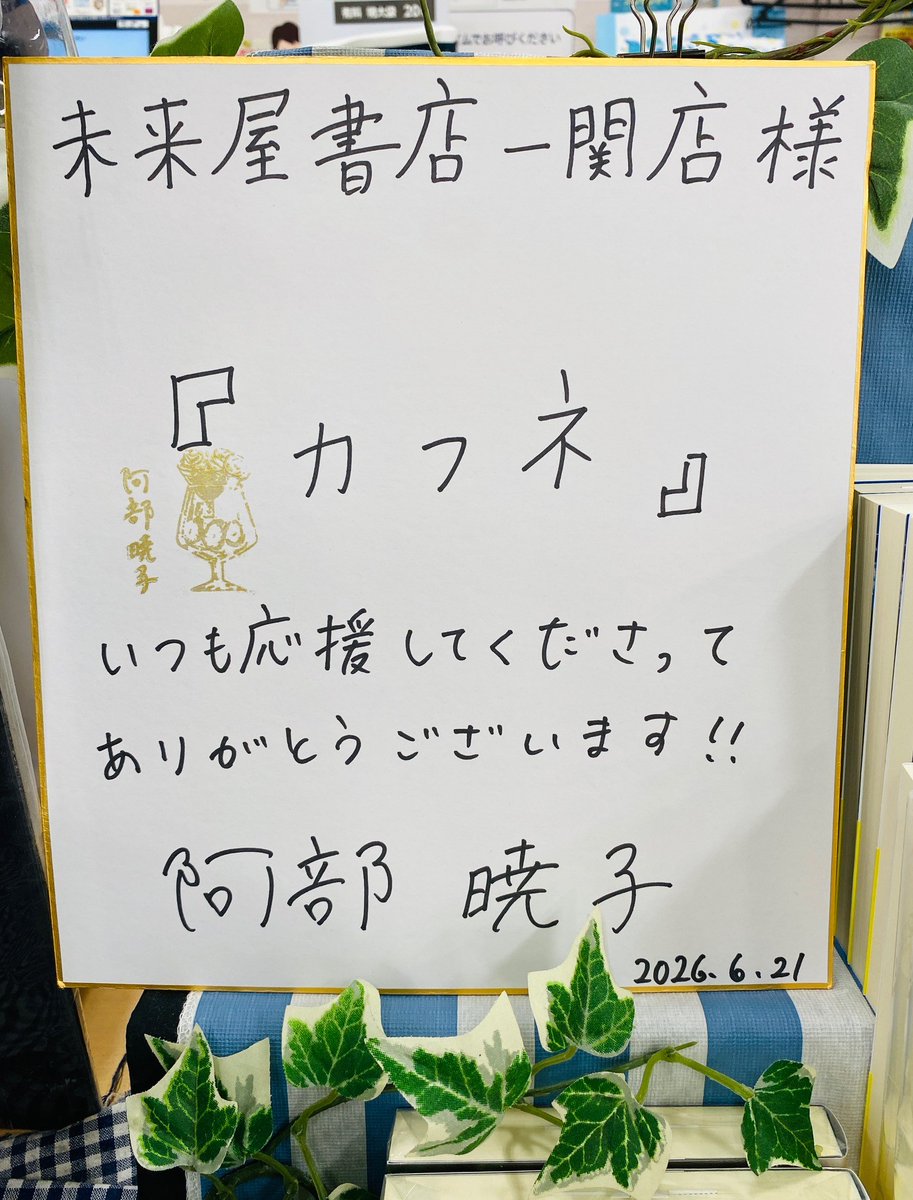 でお呼びください
未来屋書店一関店様
『カフネ』
阿部暁子
いつも応援してくださって
ありがとうございます!!
阿部 暁子
2026.6.21